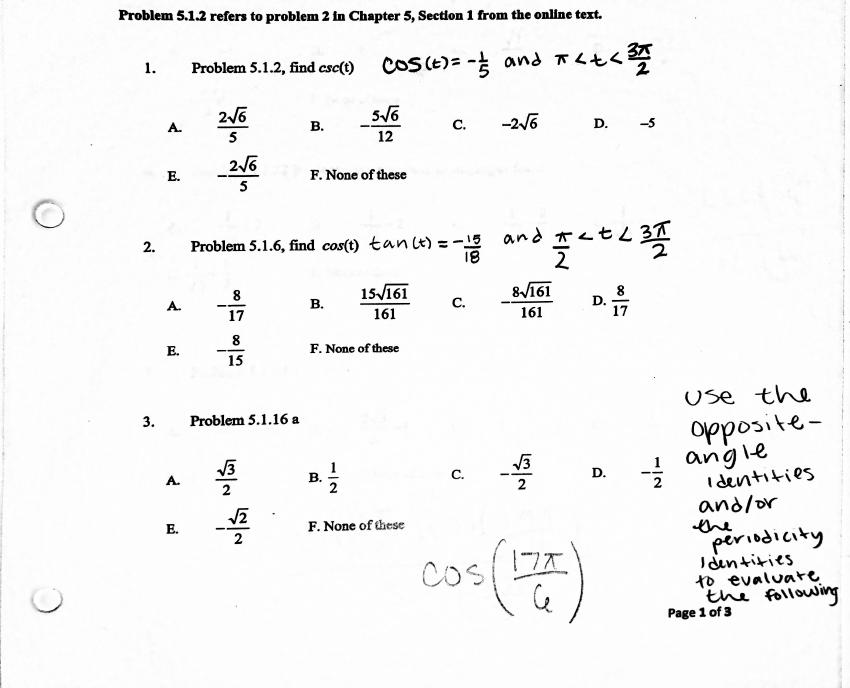 Problem 5.1.2 refers to problem 2 in Chapter 5, Section 1 from the online text.
1. Problem 5.1.2, find csc(t) cos(t)= -1/5 and π<t<3π/2
A. 2√6/5 B. -5√6/12 C. -2√6 D. -5
E. -2√6/5 F. None of these
2. Problem 5.1.6, find cos(t) tan(t) = -15/18 and π/2<t<3π/2
A. -8/17 B. 15√161/161 C. -8√161/161 D. 8/17
E. -8/15 F. None of these
3. Problem 5.1.16 a
A. √3/2 B. 1/2 C. -√3/2 D. -1/2
E. -√2/2 F. None of these
cos(17π/6)
use the
opposite-
angle
identities
and/or
the
periodicity
Identities
to evaluate
the following
Page 1 of 3